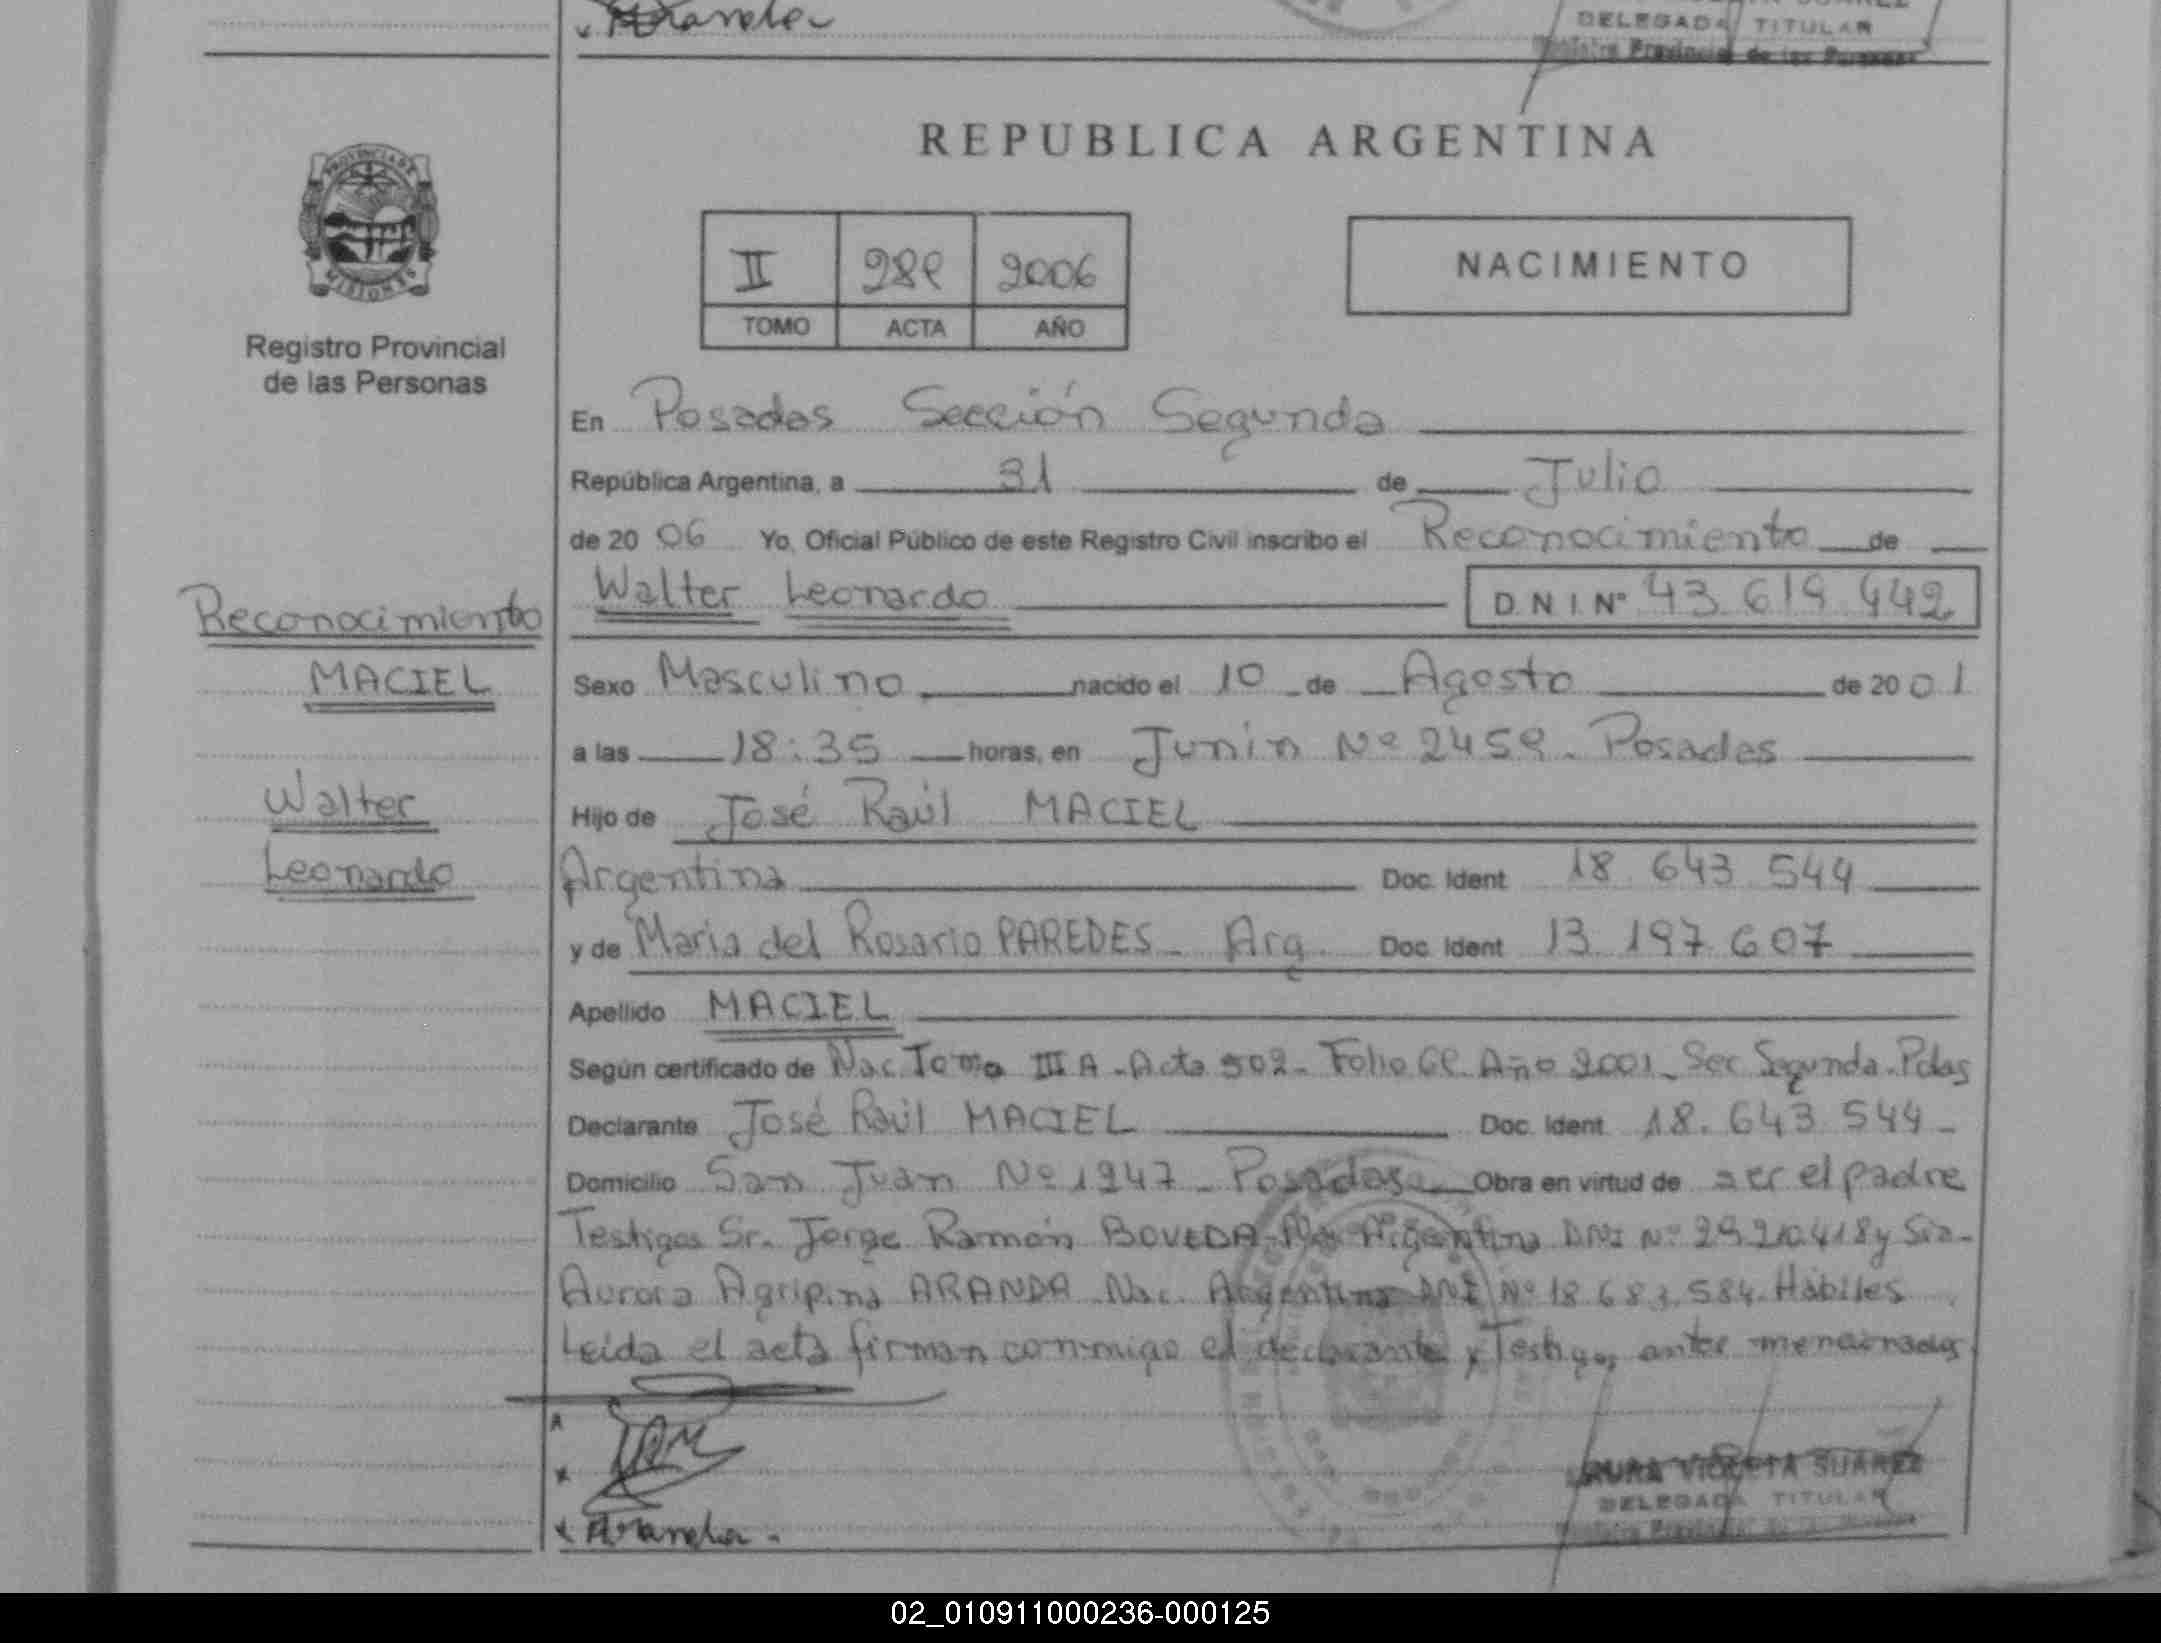 Aranda
DELEGADA TITULAR
Registro Provincial de las Personas
PROVINCIA DE
MISIONES
Registro Provincial
de las Personas
REPUBLICA ARGENTINA
II 289 2006
TOMO ACTA AÑO
NACIMIENTO
En Posadas Sección Segunda
República Argentina, a 31 de Julio
de 2006 Yo, Oficial Público de este Registro Civil inscribo el Reconocimiento de
Walter Leonardo D.N.I. Nº 43.619.442
Reconocimiento
MACIEL
Walter
Leonardo
Sexo Masculino nacido el 10 de Agosto de 2001
a las 18:35 horas, en Junin Nº 2459. Posadas
Hijo de José Raúl MACIEL
Argentina Doc. Ident 18.643.544
y de Maria del Rosario PAREDES - Arg. Doc. Ident 13.197.607
Apellido MACIEL
Según certificado de Nac. Tomo III A - Acta 502 - Folio Año 2001 - Sec Segunda - Pdas
Declarante José Raúl MACIEL Doc. Ident. 18.643.544 -
Domicilio San Juan Nº 1947 - Posadas Obra en virtud de ser el padre
Testigos Sr. Jorge Ramón BOVEDA Argentina DNI Nº 29.210.418 y Sra -
Aurora Agripina ARANDA Nac. Argentina DNI Nº 18.683.584. Hábiles
Leida el acta firman conmigo el declarante y Testigos antes mencionados
Aranda.
LAURA VIOLETA SUAREZ
DELEGADA TITULAR
02_010911000236-000125